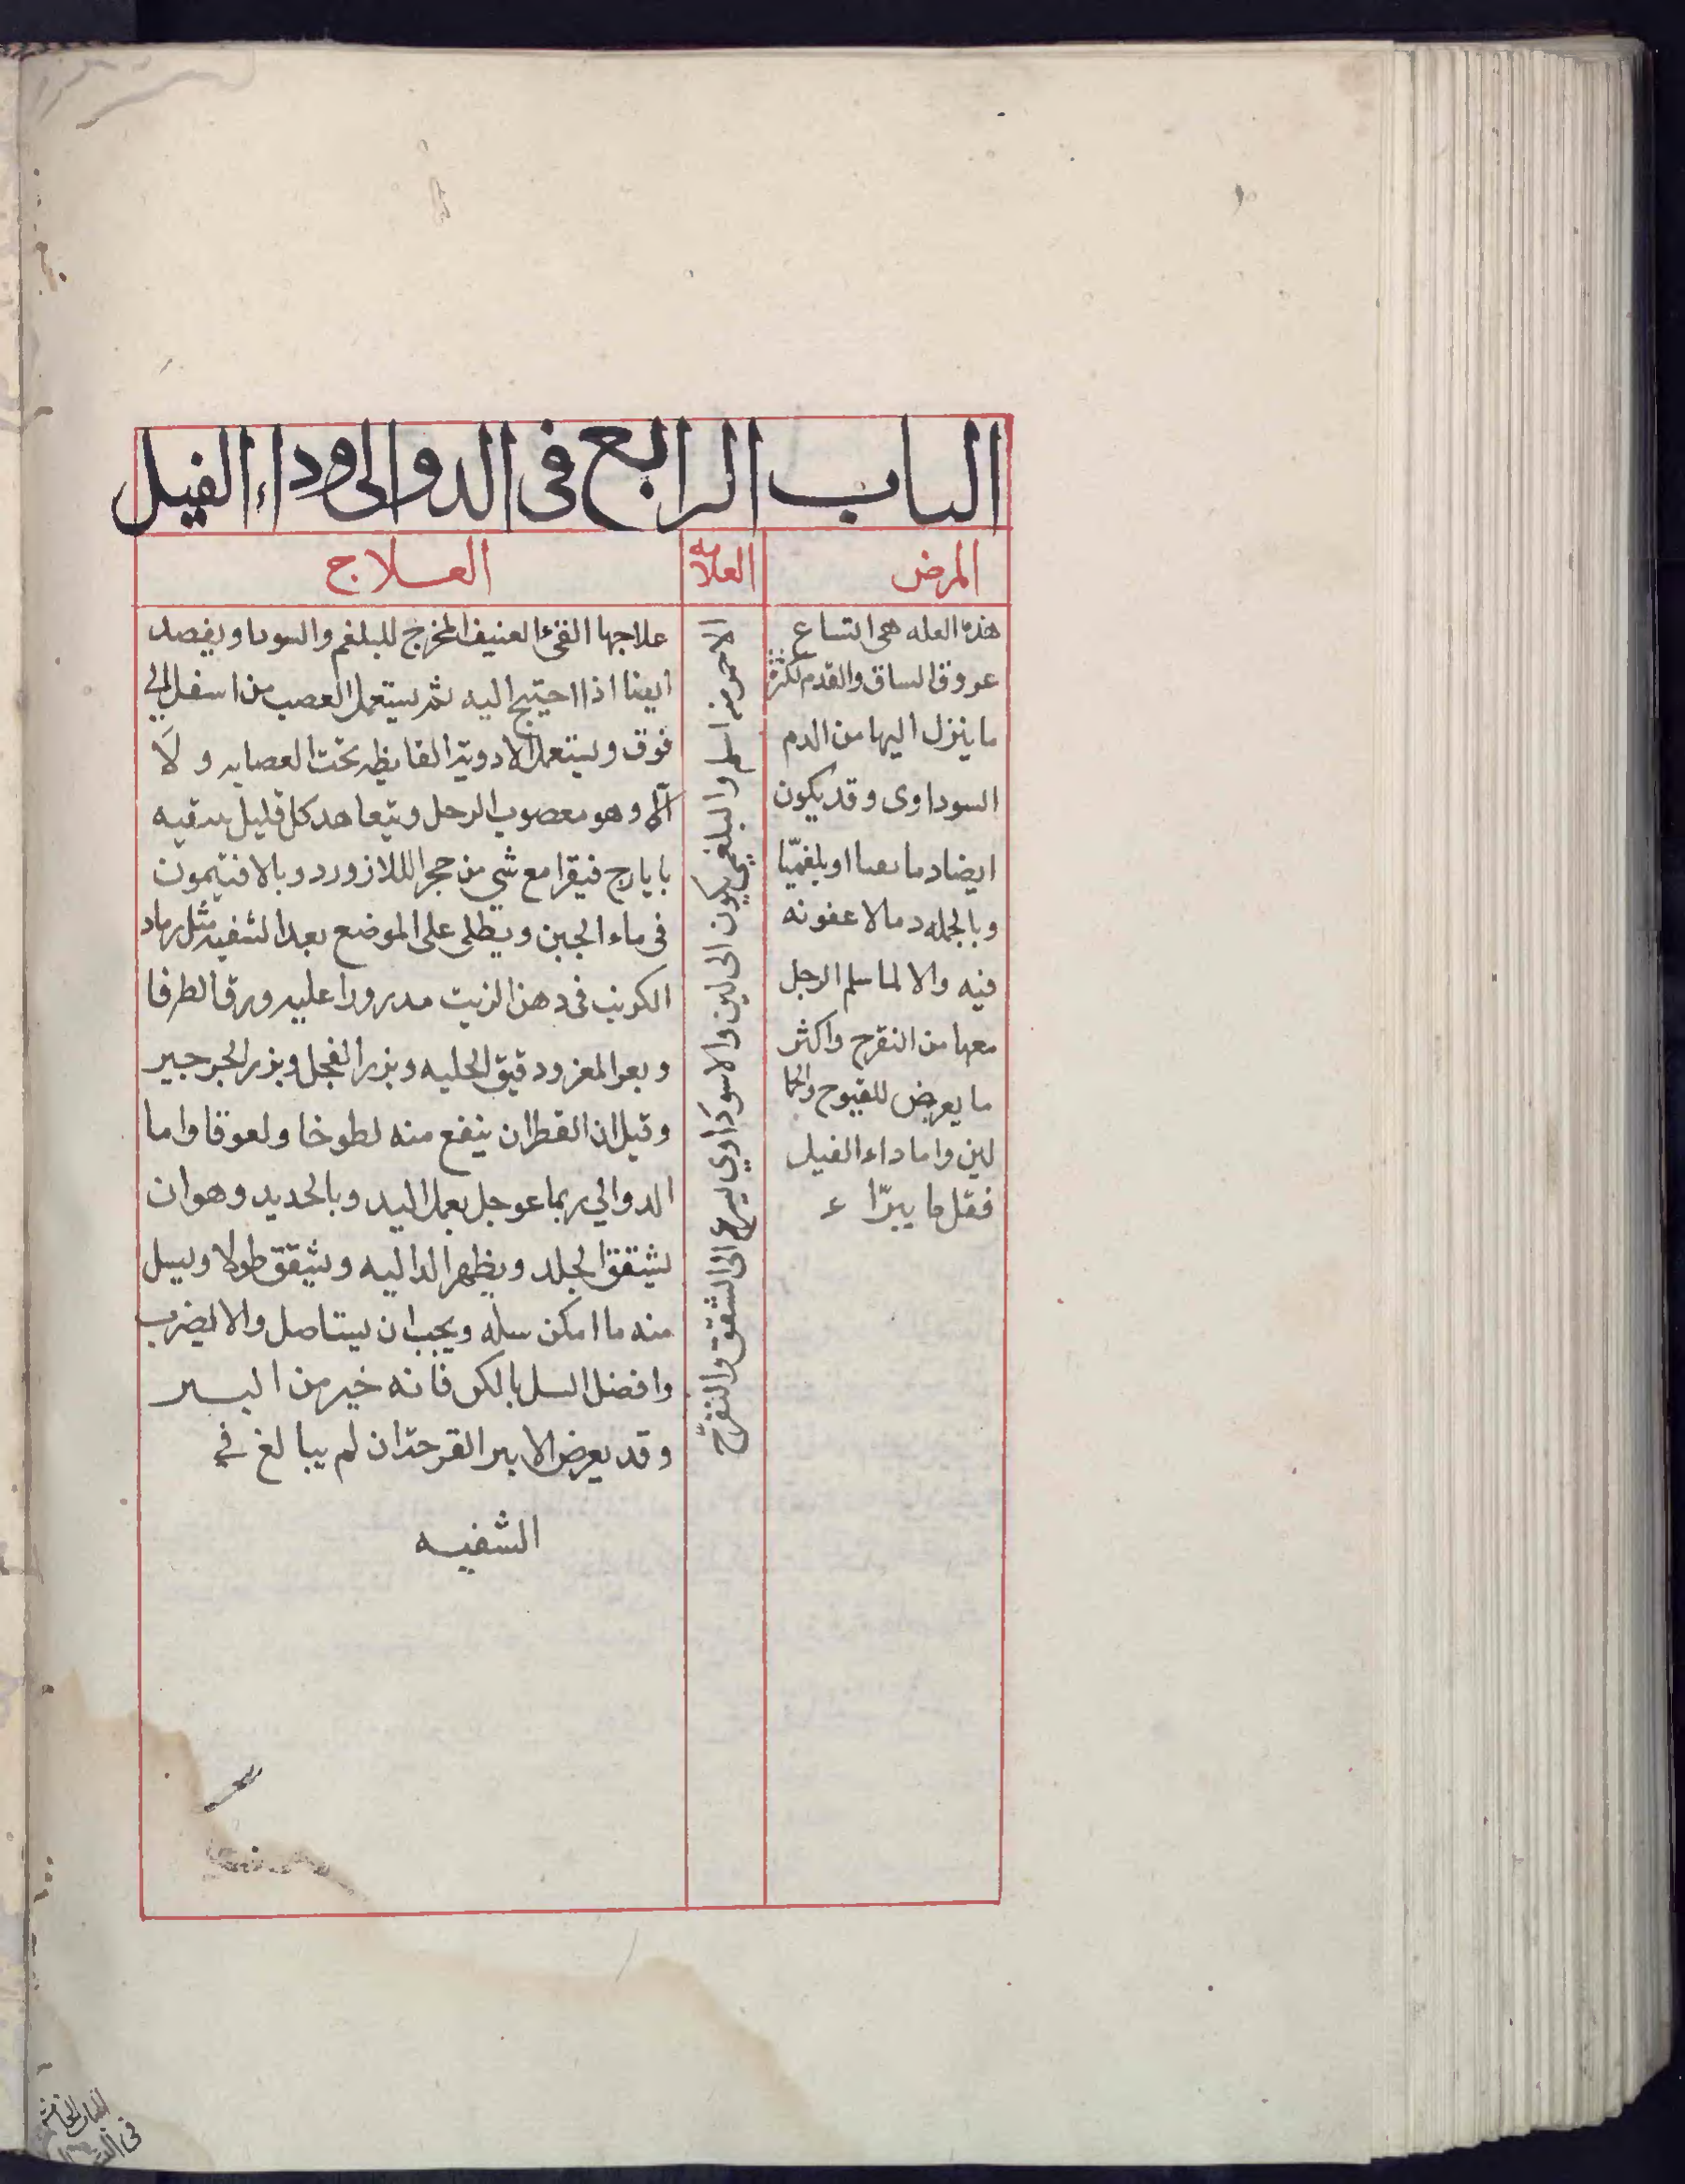 الباب الرابع فى الدوالى وداء الفيل
المرض
هذه العله هى اتساع
عروق الساق والقدم لكثرة
ما ينزل اليها من الدم
السوداوى وقد يكون
ايضا دما نقيا او بلغميّا
وبالجمله دما لا عفونه
فيه والا لما سلم الرجل
معها من التقرح واكثر
ما يعرض للفيوج والحما
لين واما داء الفيل
فقل ما يبرّا
العلامه
الاحمر منه اسلم والبلغمي يكون الى لين والاسوداوي يسرع الى التشقق والتقرّح
العلاج
علاجها القئ العنيف المخرج للبلغم والسودا ويفصد
ايضا اذا احتيج اليه ثم يستعمل العصب من اسفل الى
فوق ويستعمل الادوية القابظه تحت العصابه ولا
الا وهو معصوب الرجل ويتعاهد كل قليل بتنقيه
بايارج فيقرا مع شي من حجر اللازورد وبالافتيمون
فى ماء الجبن ويطلى على الموضع بعد التنقيه مثل رماد
الكرنب فى دهن الزيت مدرورا عليه ورق الطرفا
وبعر المعز ودقيق الحلبه وبزر الفجل وبزر الجرجير
وقيل ان القطران ينفع منه لطوخا ولعوقا واما
الدوالي ربما عوجل بعمل اليد وبالحديد وهو ان
يشقق الجلد ويظهر الداليه ويشقق طولا ويسل
منه ما امكن سله ويجب ان يستاصل والا ليضرب
وافضل السل بالكى فانه خير من البتر
وقد يعرض الابر القرحة ان لم يبالغ في
التنقيه
الباب الخامس